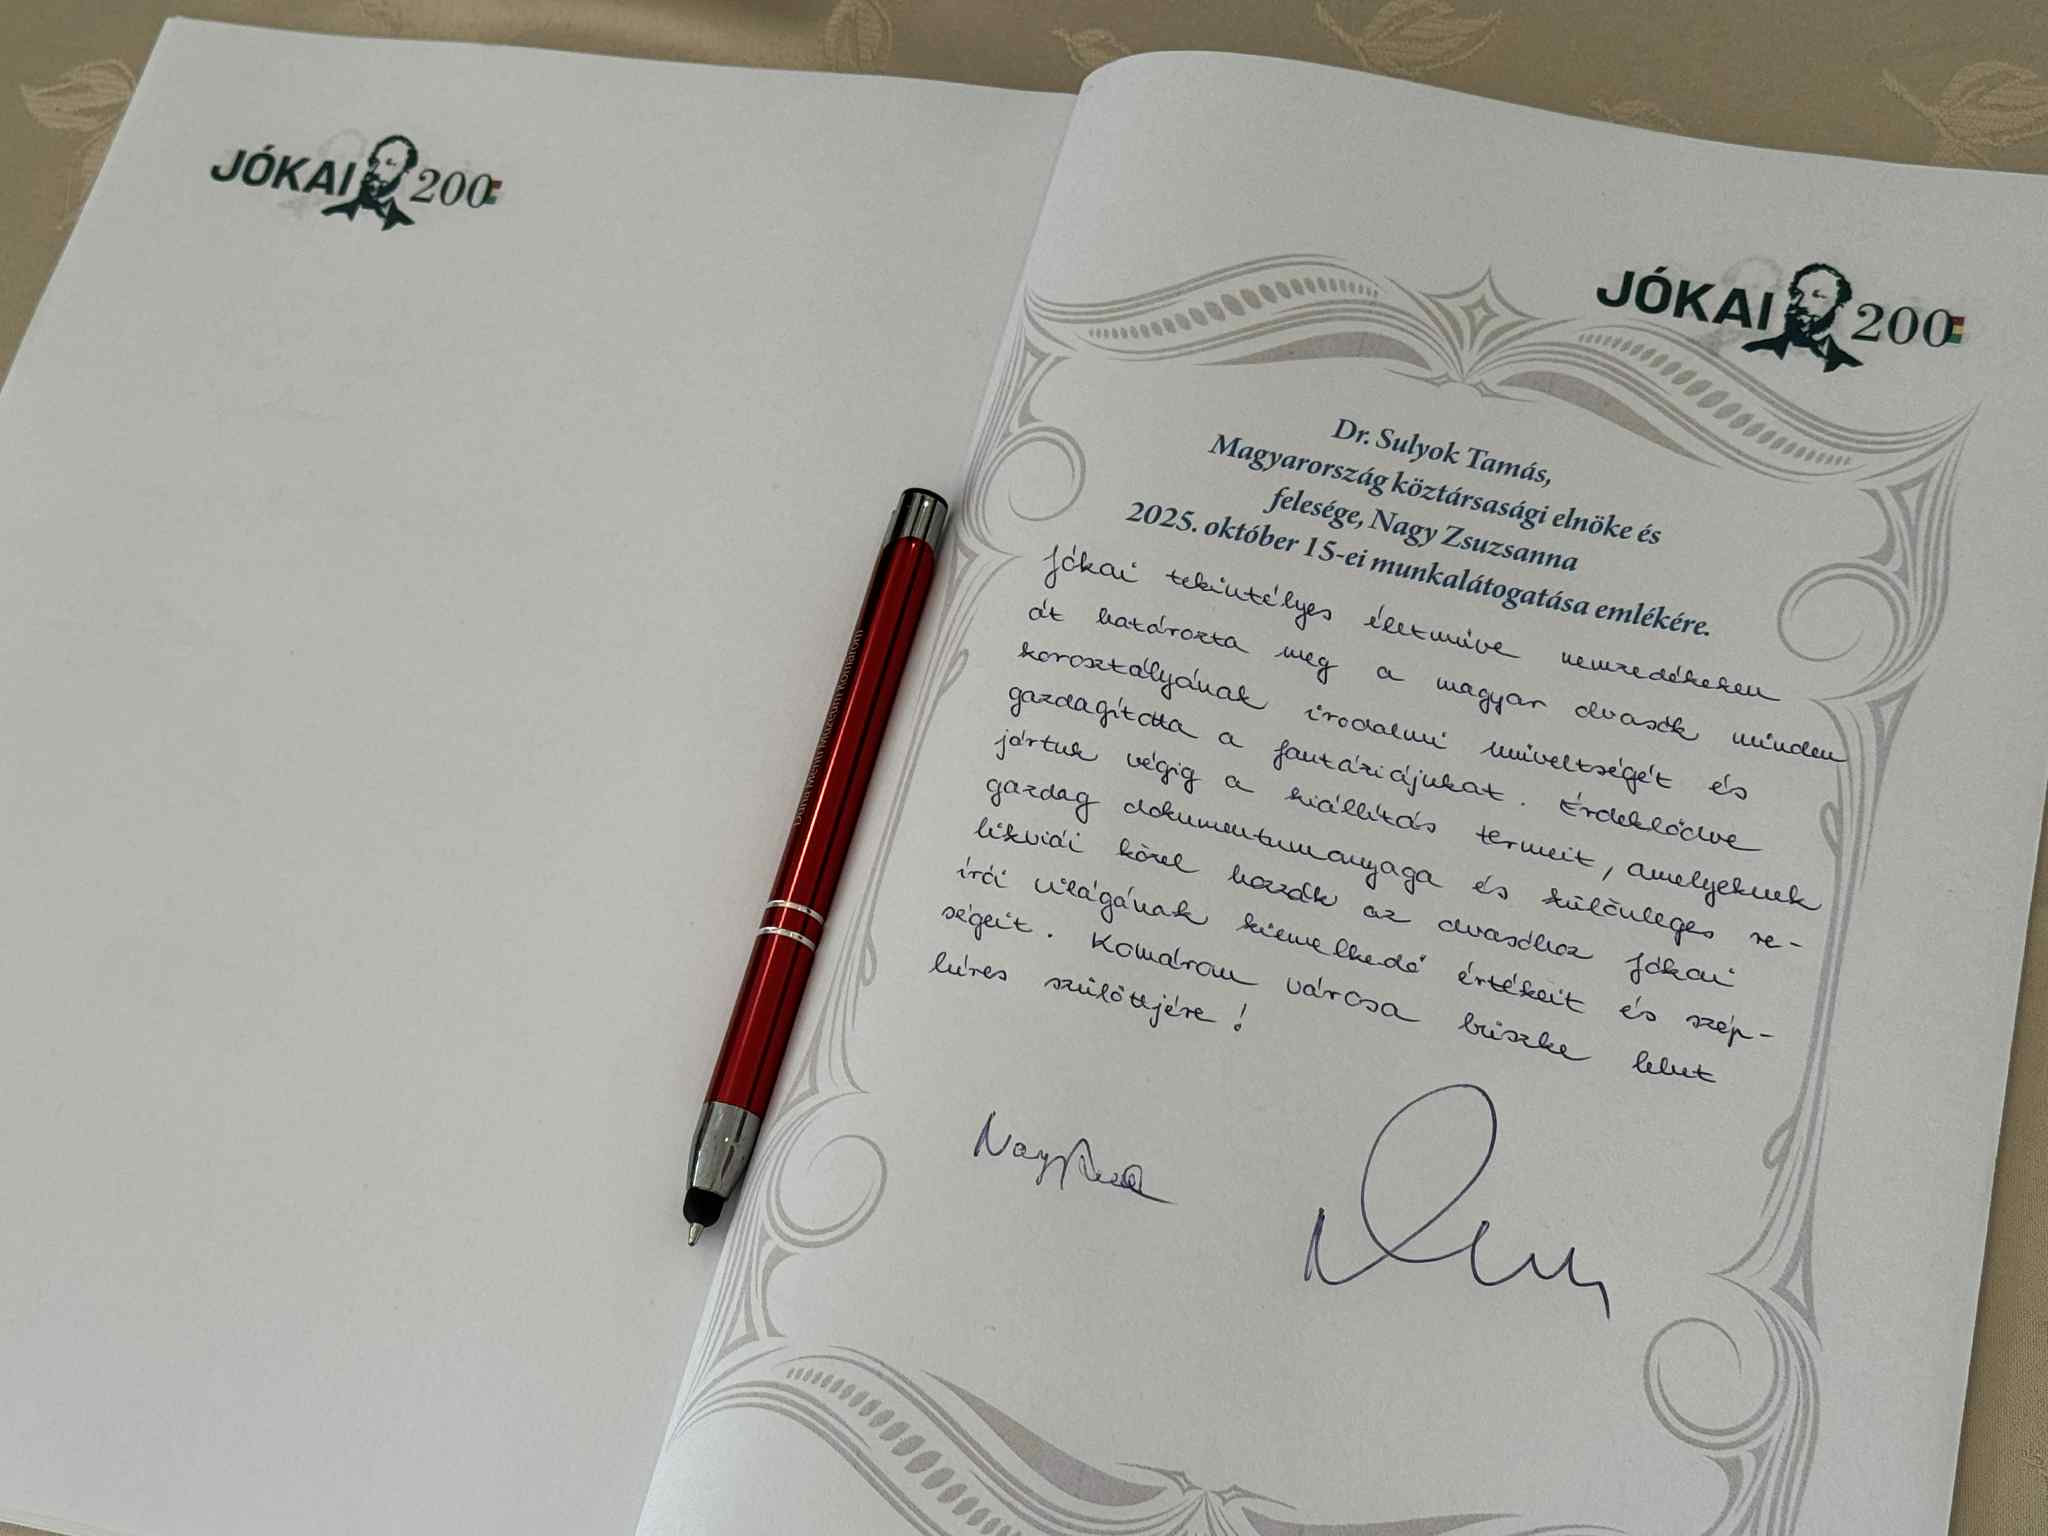 JÓKAI 200
JÓKAI 200
Dr. Sulyok Tamás,
Magyarország köztársasági elnöke és
felesége, Nagy Zsuzsanna
2025. október 15-ei munkalátogatása emlékére.
Jókai tekintélyes életműve nemzedékeken
át határozta meg a magyar olvasók minden
korosztályának irodalmi műveltségét és
gazdagította a fantáziájukat. Érdeklődve
jártuk végig a kiállítás termeit, amelyeknek
gazdag dokumentumanyaga és különleges re-
likviái közel hozzák az olvasóhoz Jókai
írói világának kiemelkedő értékeit és szép-
ségeit. Komárom városa büszke lehet
híres szülöttjére!
Nagy
Duna Menti Múzeum Komárom